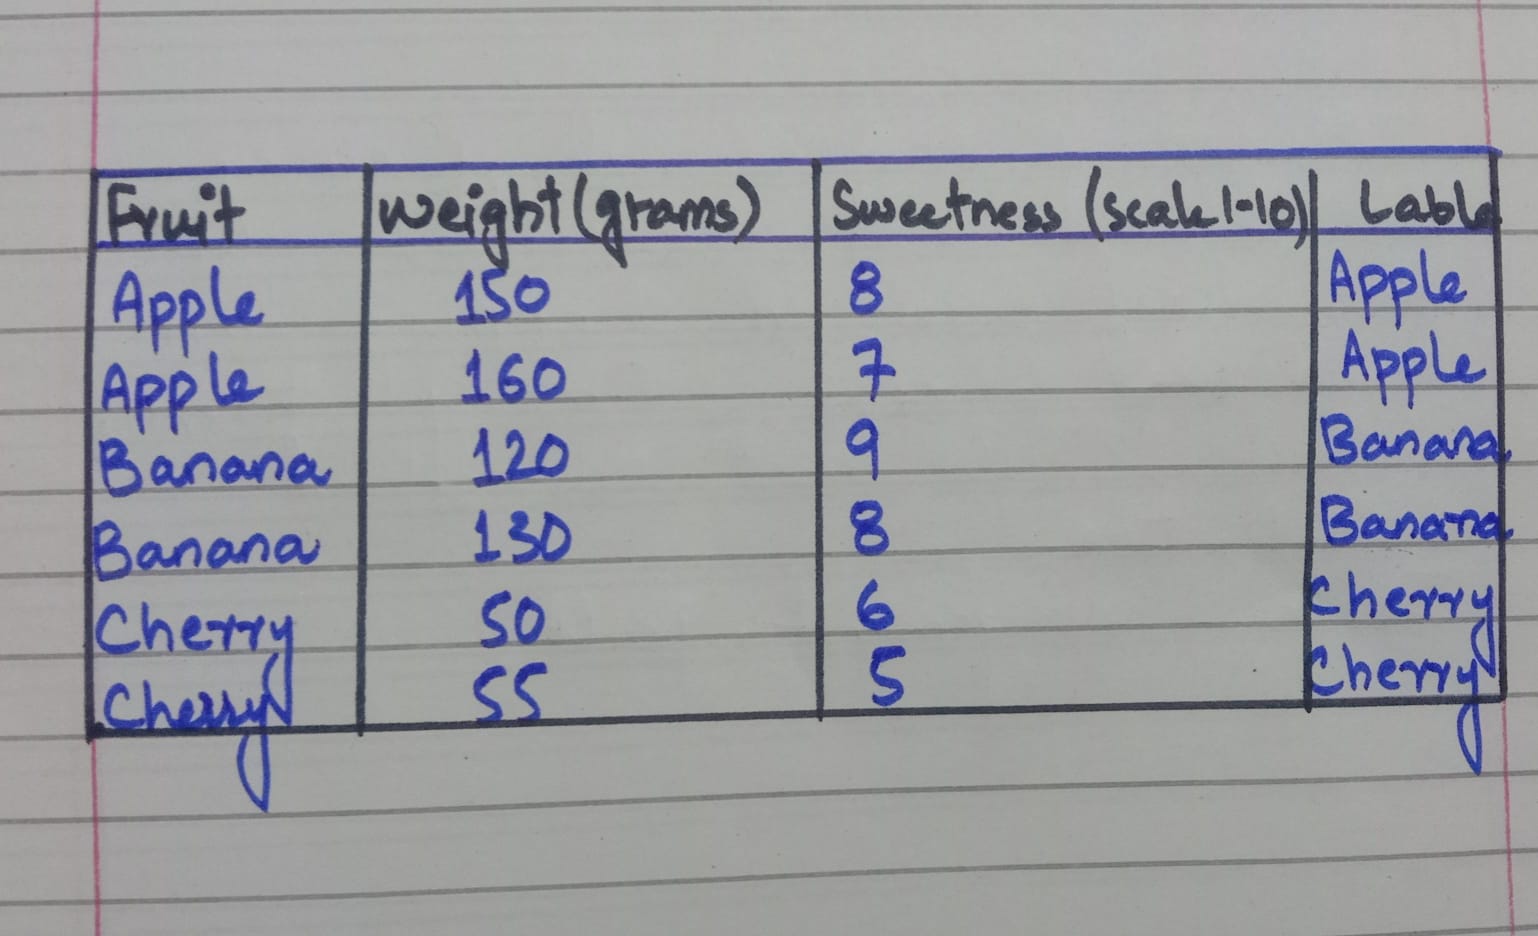 Fruit Weight (grams) Sweetness (scale 1-10) Lable
Apple 150 8 Apple
Apple 160 7 Apple
Banana 120 9 Banana
Banana 130 8 Banana
Cherry 50 6 Cherry
Cherry 55 5 Cherry